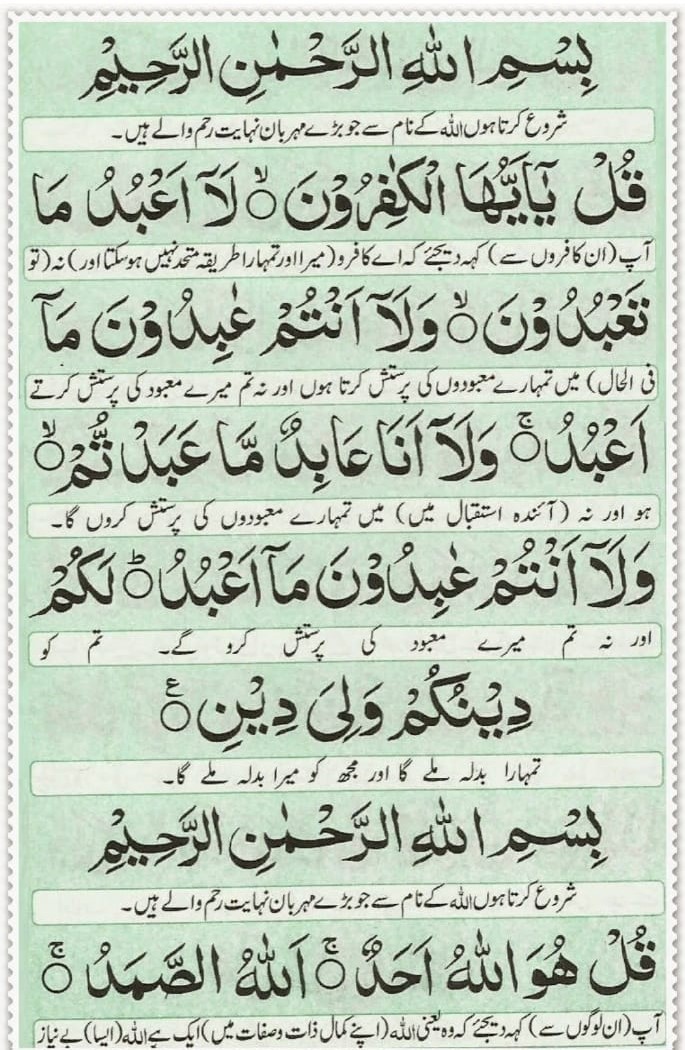 بِسْمِ اللّٰهِ الرَّحْمٰنِ الرَّحِيْمِ
شروع کرتا ہوں اللہ کے نام سے جو بڑے مہربان نہایت رحم والے ہیں۔
قُلْ يٰٓاَيُّهَا الْكٰفِرُوْنَ ۙ لَآ اَعْبُدُ مَا
آپ (ان کافروں سے) کہہ دیجئے کہ اے کافرو (میرا اور تمہارا طریقہ متحد نہیں ہو سکتا اور) نہ (تو
تَعْبُدُوْنَ ۙ وَلَآ اَنْتُمْ عٰبِدُوْنَ مَآ
فی الحال) میں تمہارے معبودوں کی پرستش کرتا ہوں اور نہ تم میرے معبود کی پرستش کرتے
اَعْبُدُ ۚ وَلَآ اَنَا عَابِدٌ مَّا عَبَدْتُّمْ ۙ
ہو اور نہ (آئندہ استقبال میں) میں تمہارے معبودوں کی پرستش کروں گا۔
وَلَآ اَنْتُمْ عٰبِدُوْنَ مَآ اَعْبُدُ ؕ لَكُمْ
اور نہ تم میرے معبود کی پرستش کرو گے۔ تم کو
دِيْنُكُمْ وَلِىَ دِيْنِ ۧ
تمہارا بدلہ ملے گا اور مجھ کو میرا بدلہ ملے گا۔
بِسْمِ اللّٰهِ الرَّحْمٰنِ الرَّحِيْمِ
شروع کرتا ہوں اللہ کے نام سے جو بڑے مہربان نہایت رحم والے ہیں۔
قُلْ هُوَ اللّٰهُ اَحَدٌ ۚ اَللّٰهُ الصَّمَدُ ۚ
آپ (ان لوگوں سے) کہہ دیجئے کہ وہ یعنی اللہ (اپنے کمال ذات وصفات میں) ایک ہے اللہ (ایسا) بے نیاز